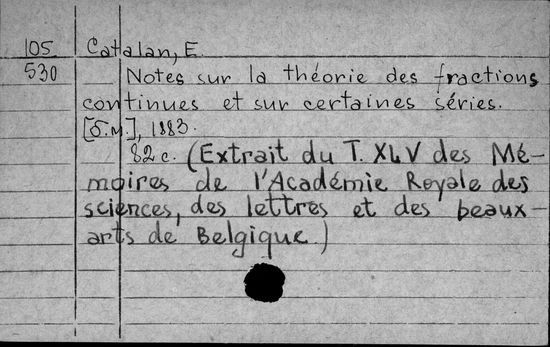 105 Catalan, E.
530 Notes sur la théorie des fractions
continues et sur certaines séries.
[б.м.], 1883.
82 с. (Extrait du T. XLV des Mé-
moires de l'Académie Royale des
sciences, des lettres et des beaux-
arts de Belgique.)